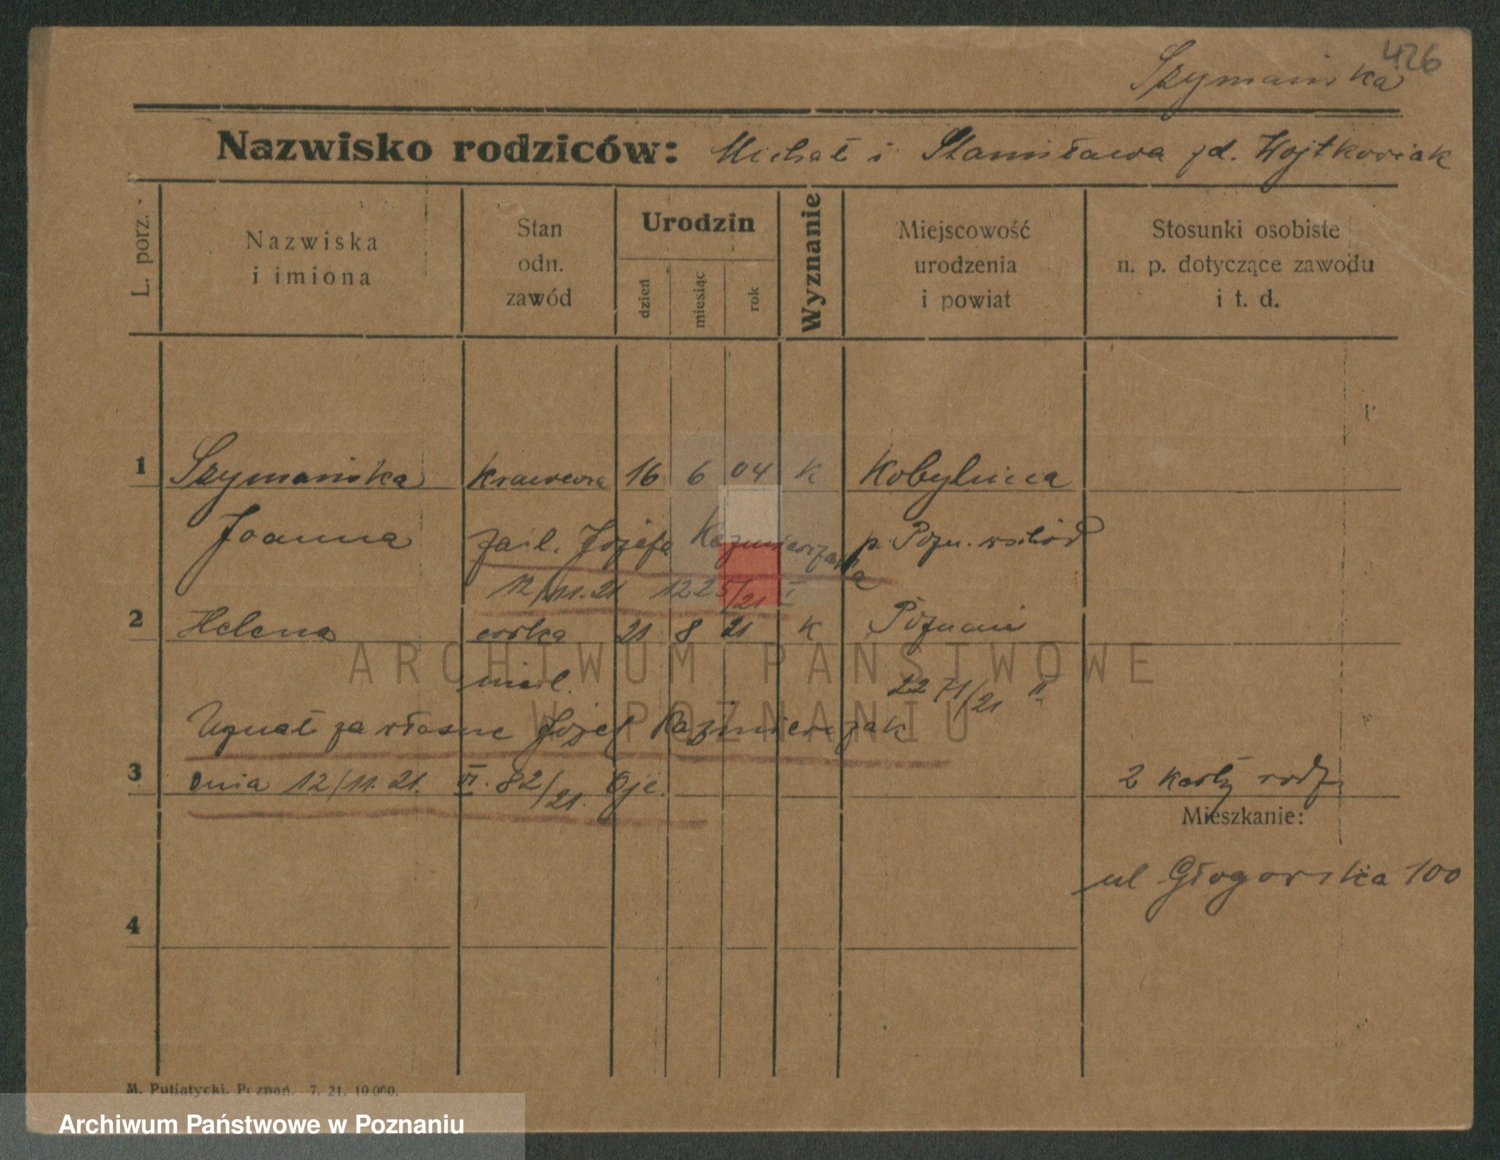 426
Szymańska
Nazwisko rodziców: Michał i Stanisława zd. Wojtkowiak
L. porz.
Nazwiska i imiona
Stan odn. zawód
Urodzin
dzień
miesiąc
rok
Wyznanie
Miejscowość urodzenia i powiat
Stosunki osobiste n. p. dotyczące zawodu i t. d.
1 Szymańska krawcowa 16 6 04 k Kobylnica
Joanna zaśl. Józefa Kazmierczaka p. Pozn. wschód
12/11.21 1225/21 I
2 Helena córka 21 8 21 k Poznań
nieśl. 2271/21 II
Uznał za własne Józef Kazmierczak
3 dnia 12/11.21. VI. 82/21. Ojc. 2 karty rodz.
Mieszkanie:
ul Głogowska 100
4
M. Putiatycki, Poznań. 7. 21. 10 000.
ARCHIWUM PAŃSTWOWE
W POZNANIU
Archiwum Państwowe w Poznaniu